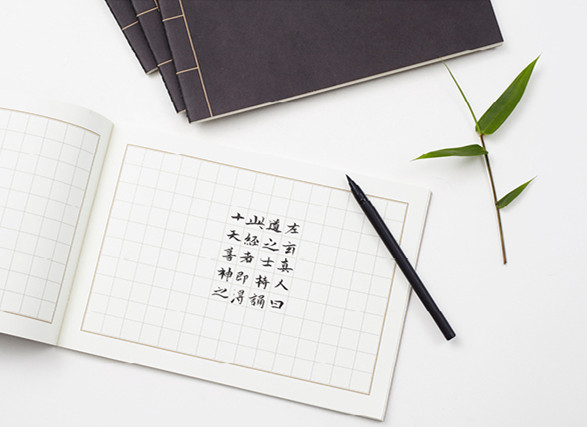 左玄真人曰
道之士持誦
此經者即得
十天善神之